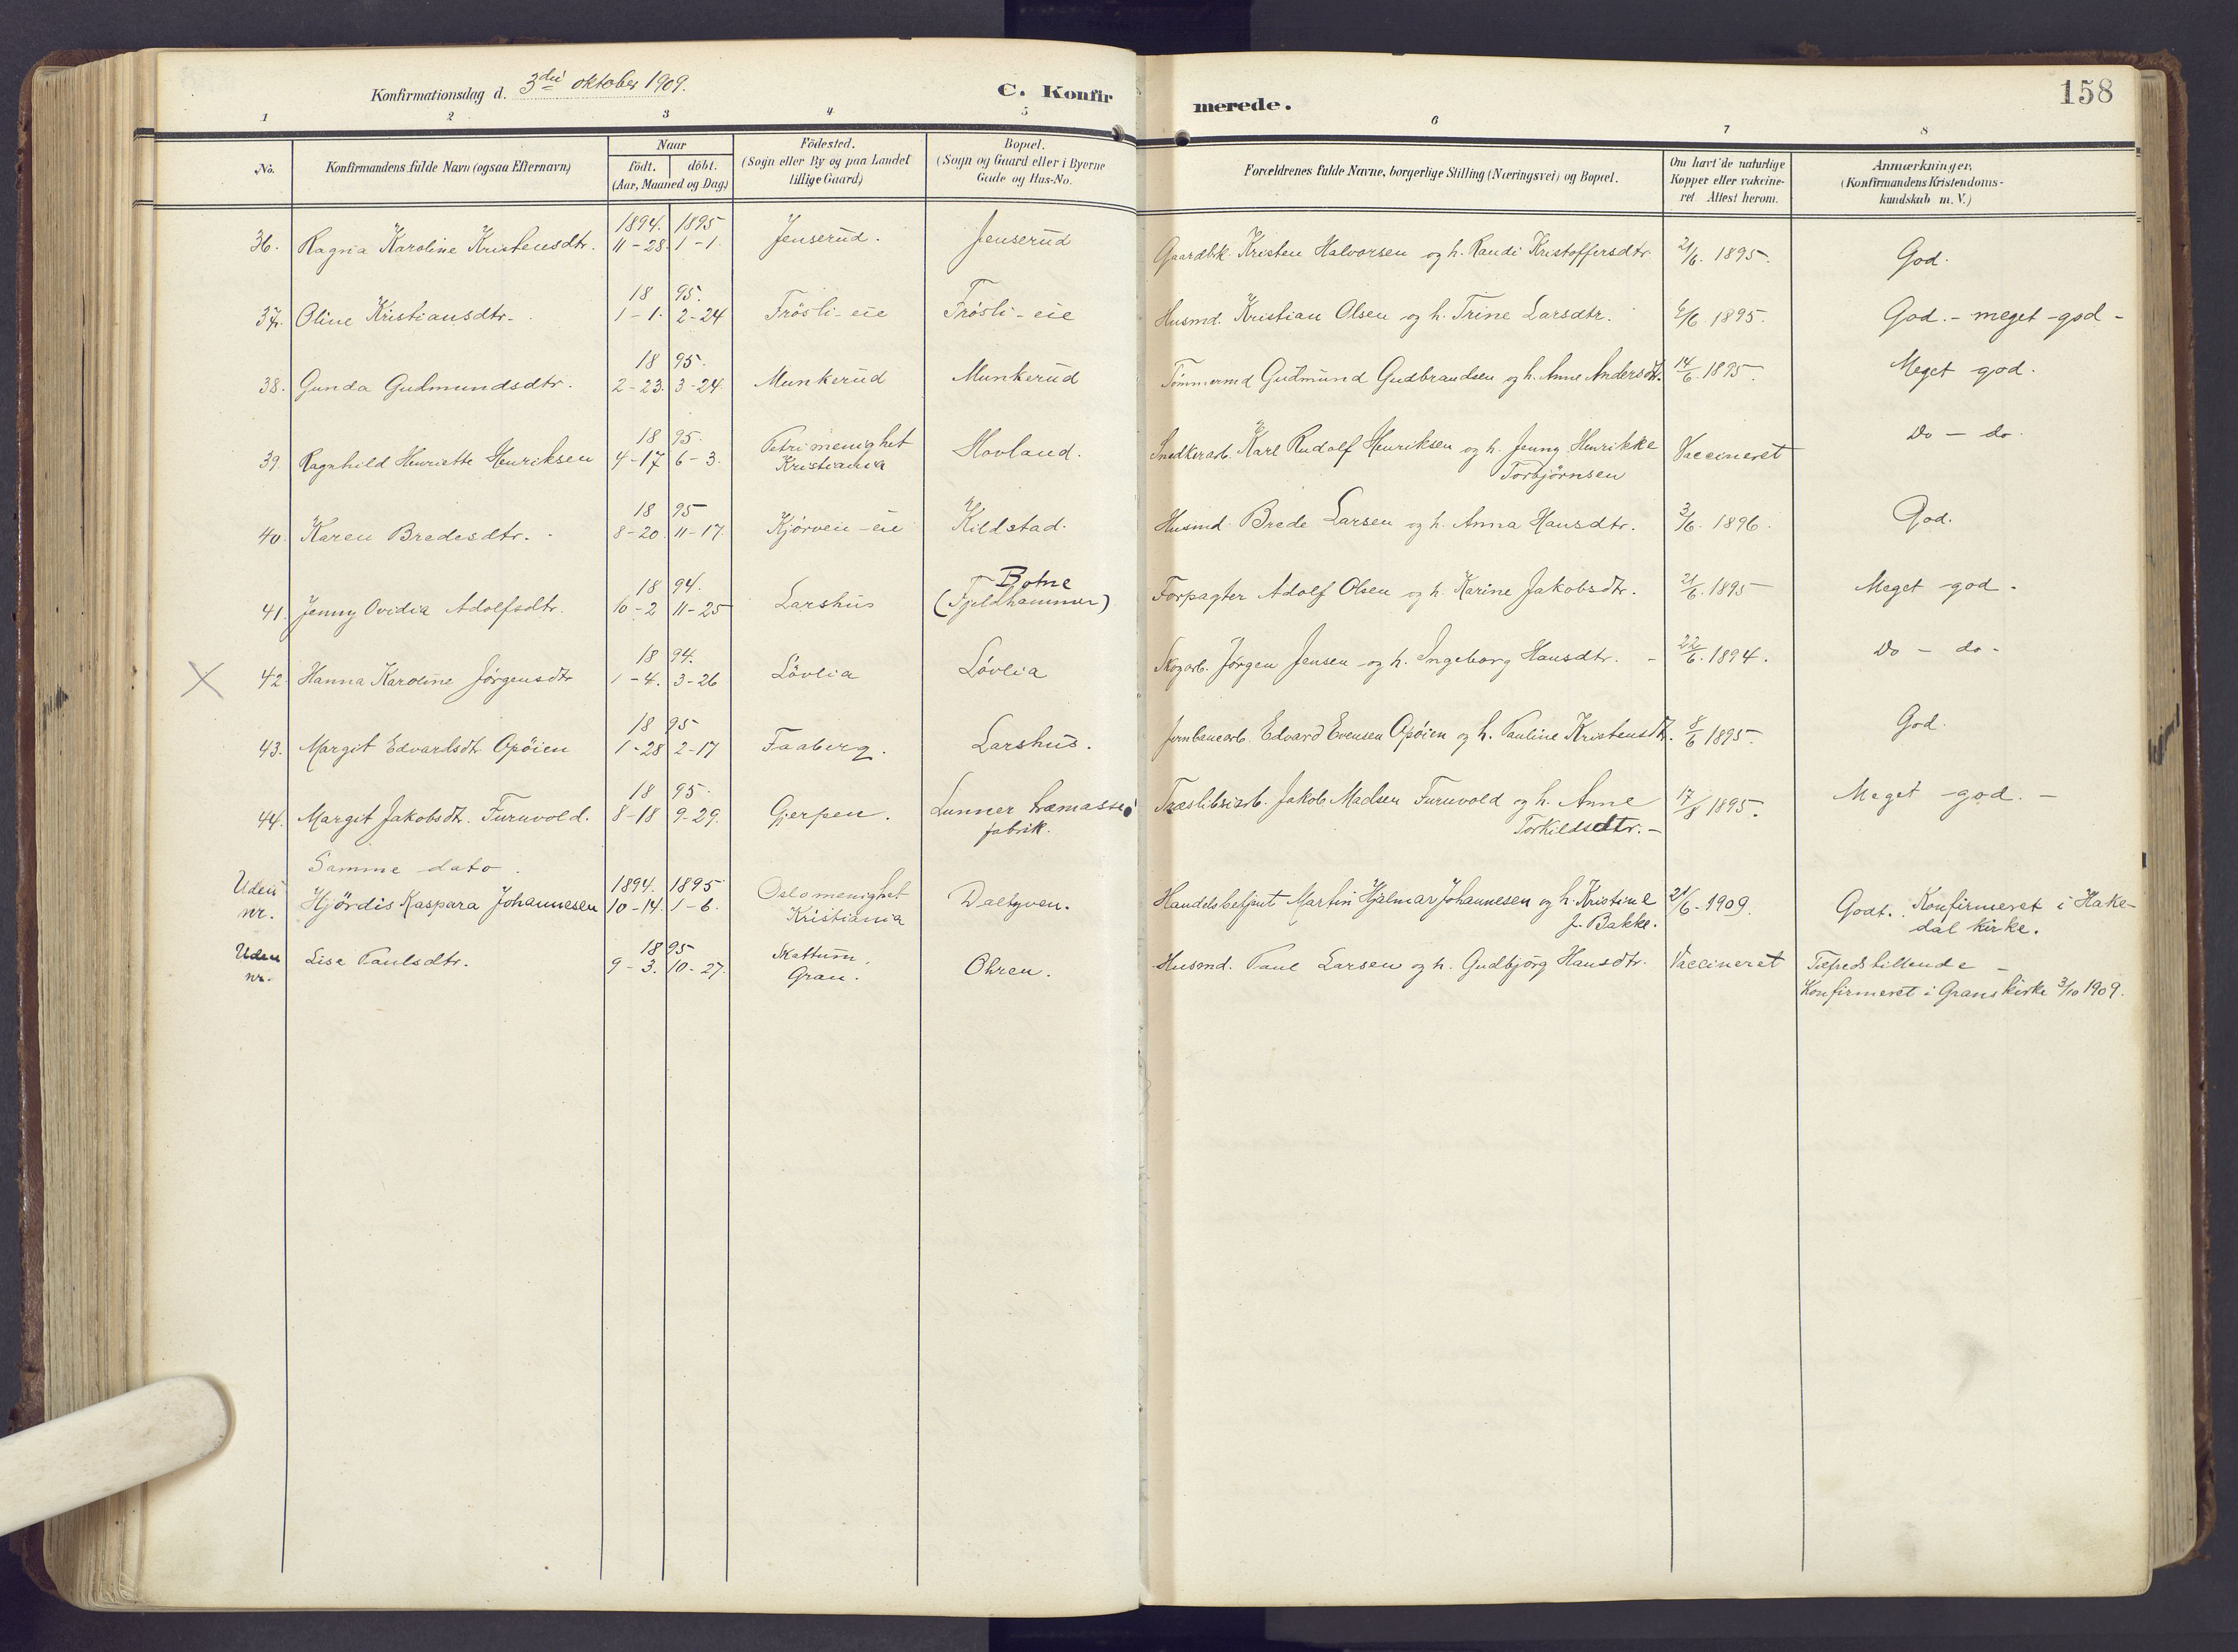 Konfirmationsdag d. 3die oktober 1909.
C. Konfirmerede.
158
1 2 3 4 5 6 7 8
No. Konfirmandens fulde Navn (ogsaa Efternavn) Naar født. døbt. (Aar, Maaned og Dag) Fødested. (Sogn eller By og paa Landet tillige Gaard) Bopæl. (Sogn og Gaard eller i Byerne Gade og Hus-No. Forældrenes fulde Navne, borgerlige Stilling (Næringsvei) og Bopæl. Om havt de naturlige Kopper eller vakcineret Attest herom. Anmærkninger, (Konfirmandens Kristendomskundskab m. V.)
1894. 1895
36. Ragna Karoline Kristensdtr. 11-28. 1-1. Jenserud. Jenserud Gaardbrk. Kristen Halvorsen og h. Randi Kristoffersdtr. 21/6. 1895. God.
18 95.
37. Oline Kristiansdtr. 1-1. 2-24 Frösli-eie Frösli-eie Husmd. Kristian Olsen og h. Trine Larsdtr. 6/6 1895. God. - meget -god -
18 95.
38. Gunda Gudmundsdtr. 2-23. 3-24. Munkerud Munkerud Tömmermd Gudmund Gudbrandsen og h. Anne Andersdtr. 14/6. 1895. Meget god.
18 95.
39. Ragnhild Henriette Henriksen 4-17 6-3. Petri menighet Kristiania Hovland. Snedkerarb. Karl Rudolf Henriksen og h. Jenny Henrikke Vaccineret Do - do.
Torbjørnsen
18 95
40. Karen Bredesdtr. 8-20. 11-17. Kjørven-eie Kildstad. Husmd. Brede Larsen og h. Anna Hansdtr. 3/6. 1896. God.
18 94. Botne
41. Jenny Ovidia Adolfsdtr. 10-2 11-25 Larshus (Fjeldhammer) Forpagter Adolf Olsen og h. Karine Jakobsdtr. 21/6. 1895 Meget -god -
18 94.
X 42. Hanna Karoline Jørgensdtr 1-4. 3-26 Lövlia Lövlia Skogarb. Jørgen Jensen og h. Ingeborg Hansdtr. - 22/6. 1894. Do - do -
18 95
43. Margit Edvardsdtr Opöien 1-28 2-17 Faaberg. Larshus. Jernbanearb. Edvard Evensen Opöien og h. Pauline Kristensdtr. 8/6 1895. God.
18 95.
44. Margit Jakobsdtr. Furuvold. 8-18 9-29. Gjerpen. Lunner træmasse Træsliberiarb. Jakob Madsen Furuvold og h. Anne 17/8 1895. Meget -god. -
fabrik. Torkildsdtr. -
Samme dato.
Uden 1894. 1895 Oslo menighet
nr. Hjördis Kaspara Johannesen 10-14. 1-6. Kristiania Daltyven. Handelsbetjent Martin Hjalmar Johannesen og h. Kristine 21/6 - 1909. Godt. Konfirmeret i Hake-
f. Bakke. dal kirke.
Uden 18 95 Skattum,
nr. Lise Paulsdtr. 9-3. 10-27. Gran. Ohren. Husmd. Paul Larsen og h. Gudbjörg Hansdtr. Vaccineret Tilfredstillende -
Konfirmeret i Grans kirke 3/10 1909.